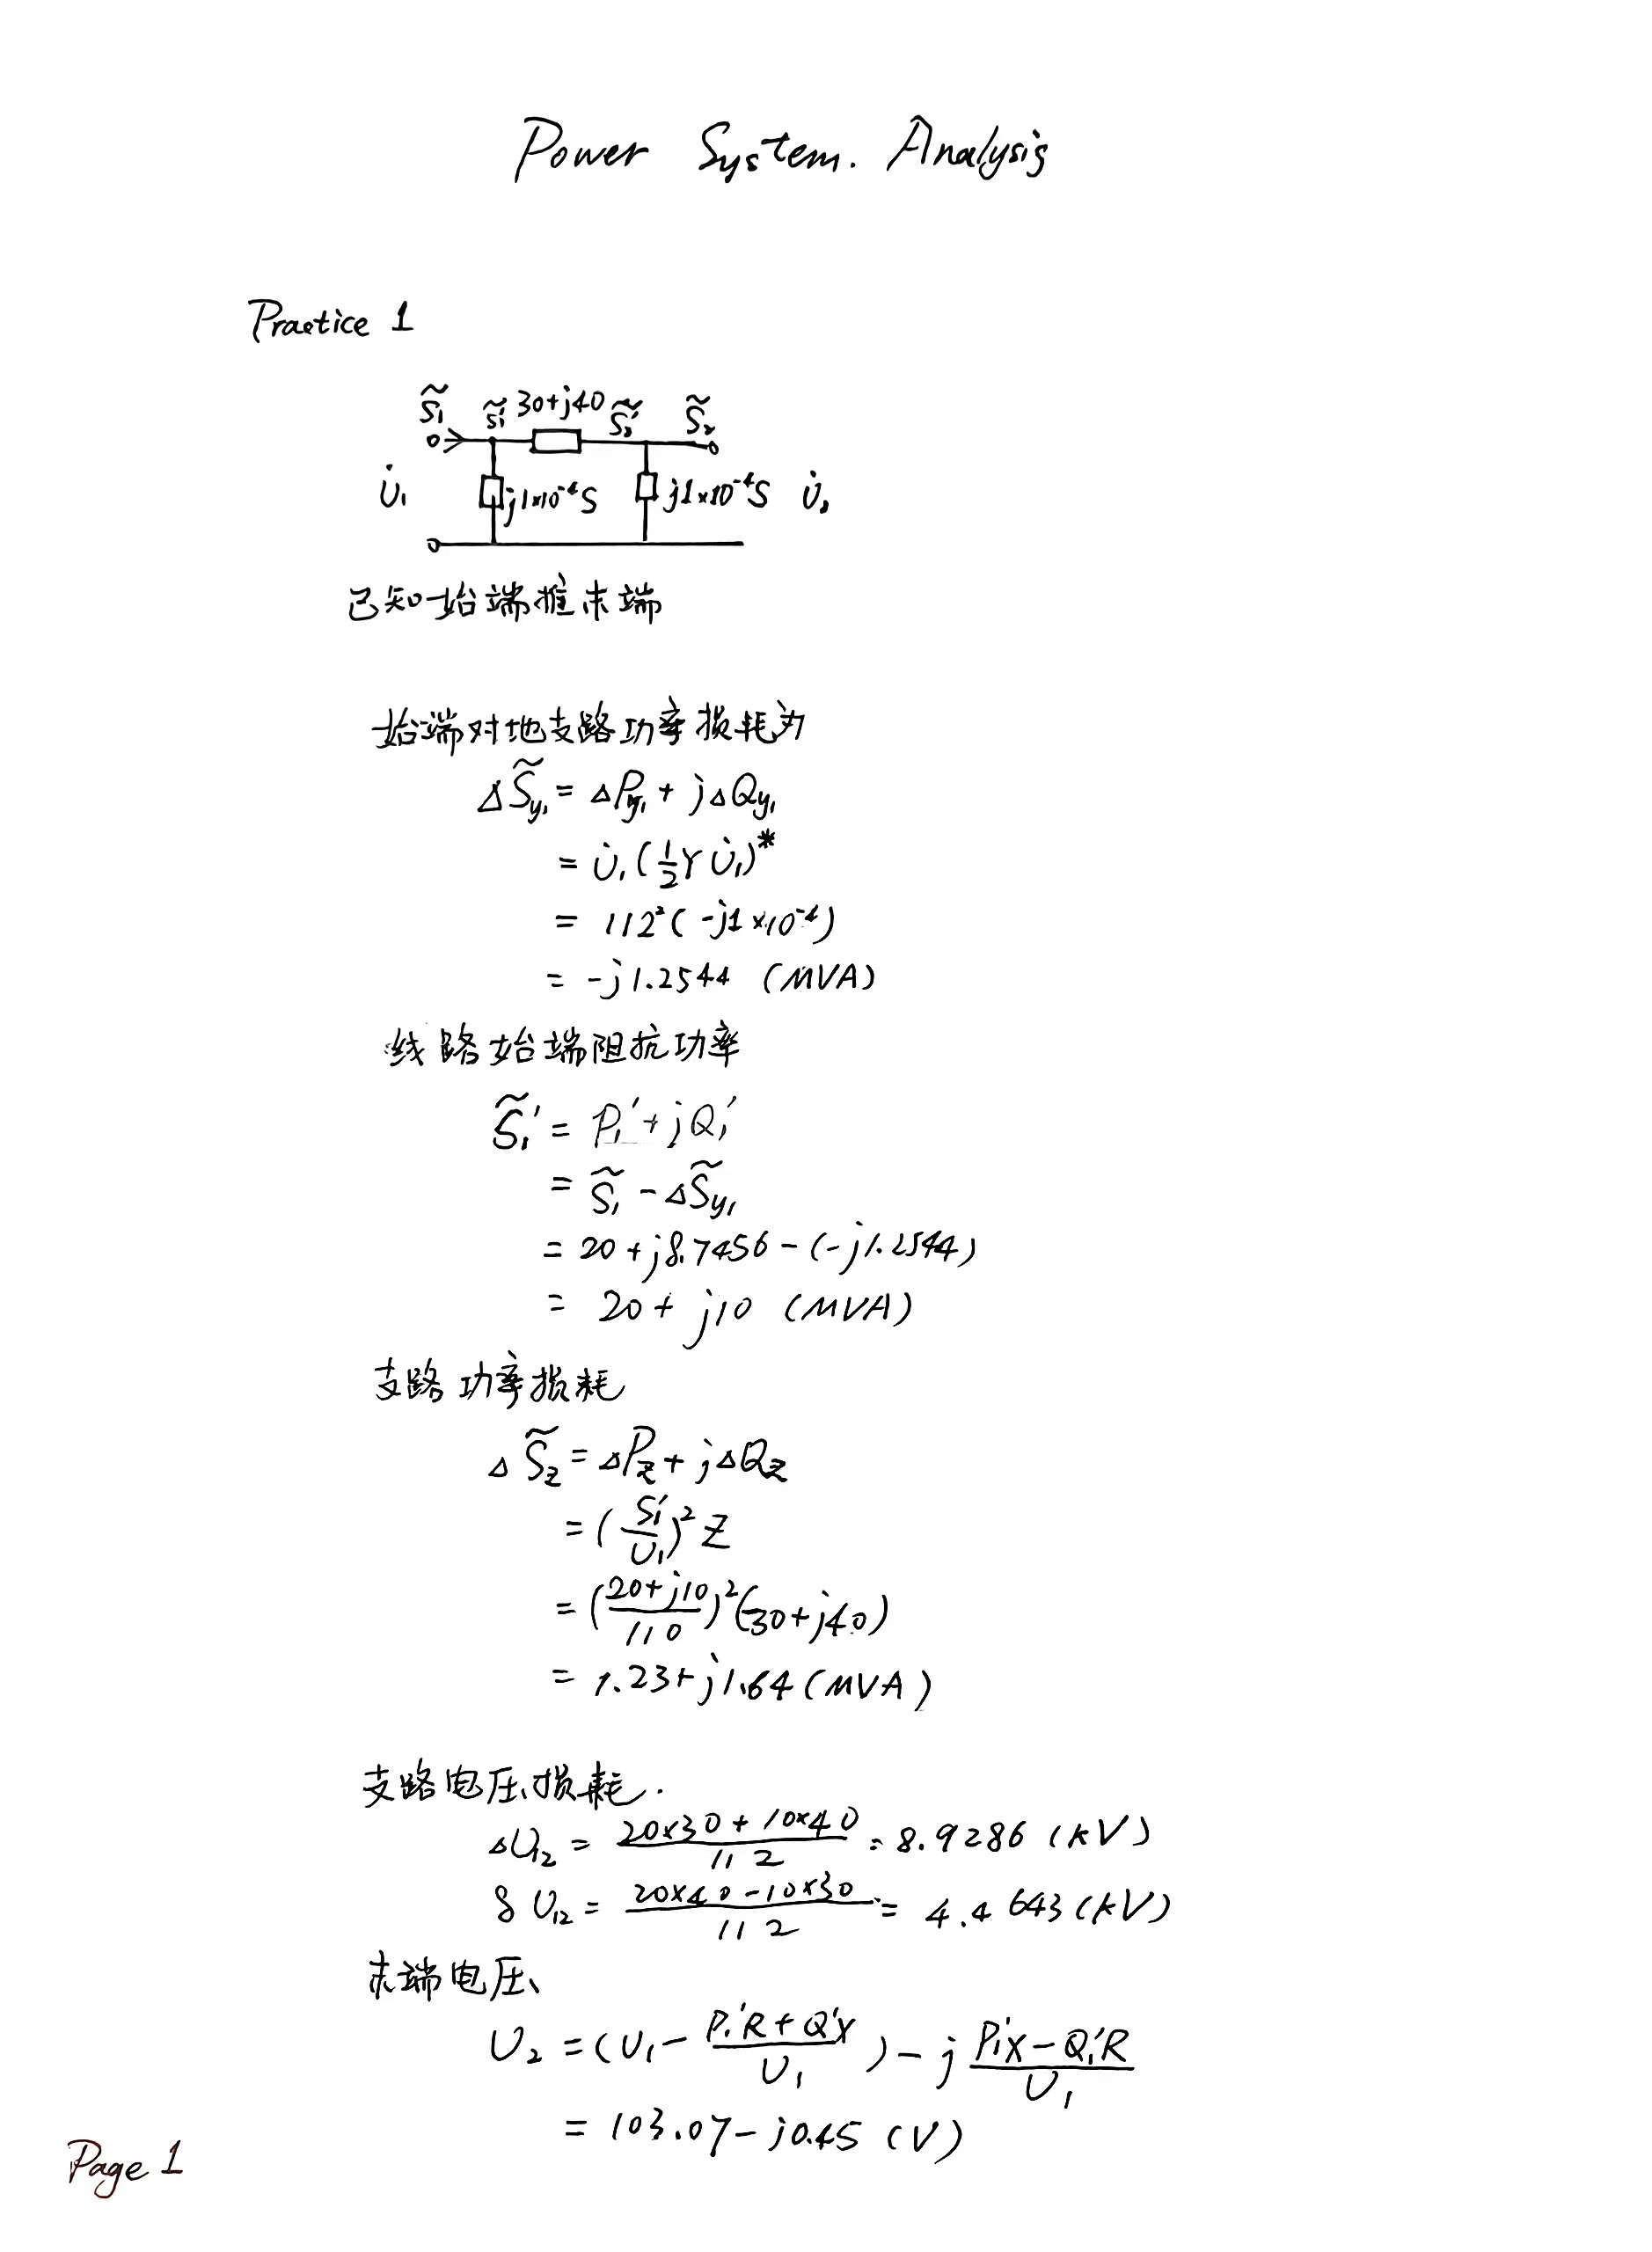 Power System. Analysis
Practice 1
S̃₁ S̃₁' 30+j40 S̃₂' S̃₂
U̇₁ j1×10⁻⁴S j1×10⁻⁴S U̇₂
已知始端推末端
始端对地支路功率损耗为
ΔS̃y₁ = ΔPy₁ + jΔQy₁
= U̇₁(½YU̇₁)*
= 112²(-j1×10⁻⁴)
= -j1.2544 (MVA)
线路始端阻抗功率
S̃₁' = P₁' + jQ₁'
= S̃₁ - ΔS̃y₁
= 20+j8.7456-(-j1.2544)
= 20+j10 (MVA)
支路功率损耗
ΔS̃z = ΔPz + jΔQz
= (S₁'/U₁)²Z
= ((20+j10)/110)²(30+j40)
= 1.23+j1.64 (MVA)
支路电压损耗.
ΔU₁₂ = (20×30+10×40)/112 = 8.9286 (kV)
δU₁₂ = (20×40-10×30)/112 = 4.4643 (kV)
末端电压
U₂ = (U₁ - (P₁'R+Q₁'X)/U₁) - j(P₁'X-Q₁'R)/U₁
= 103.07-j0.45 (V)
Page 1